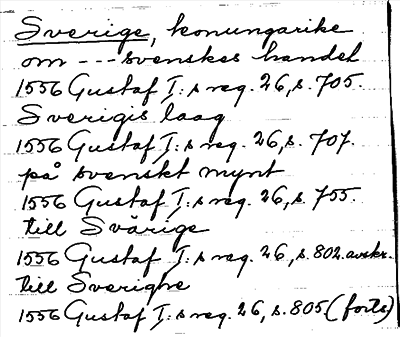 Sverige, konungarike
om --- svenskes handel
1556 Gustaf I: s reg. 26, s. 705.
Sverigis laag
1556 Gustaf I: s reg. 26, s. 707.
på svenskt mynt
1556 Gustaf I: s reg. 26, s. 755.
till Svärige
1556 Gustaf I: s reg. 26, s. 802. avskr.
till Sverighe
1556 Gustaf I: s reg. 26, s. 805 (forts)